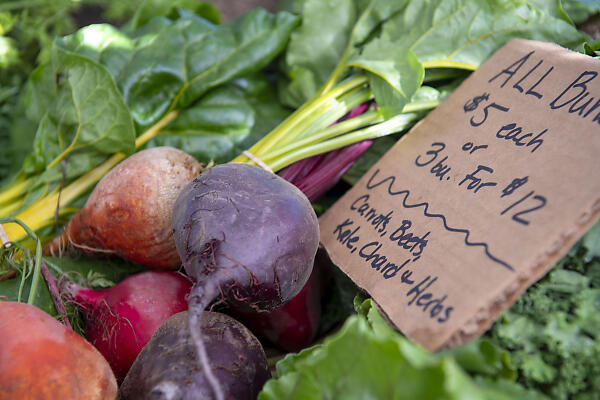 ALL
$5 each
or
3 bu. For $12
Carrots, Beets,
Kale, Chard &
Herbs